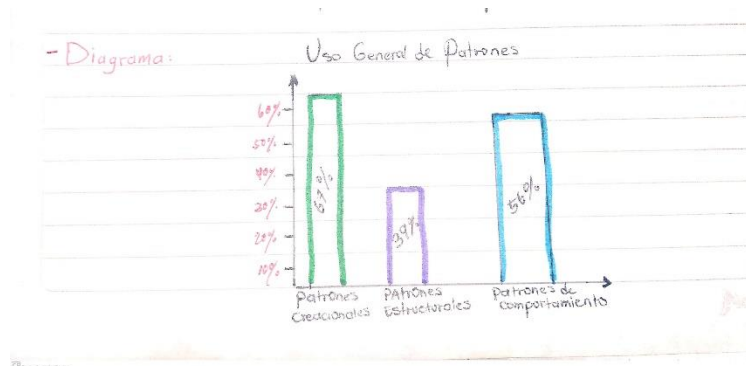 - Diagrama:
Uso General de Patrones
60%
50%
40%
30%
20%
10%
67%
39%
56%
Patrones
Creacionales
PAtrones
Estructurales
Patrones de
comportamiento